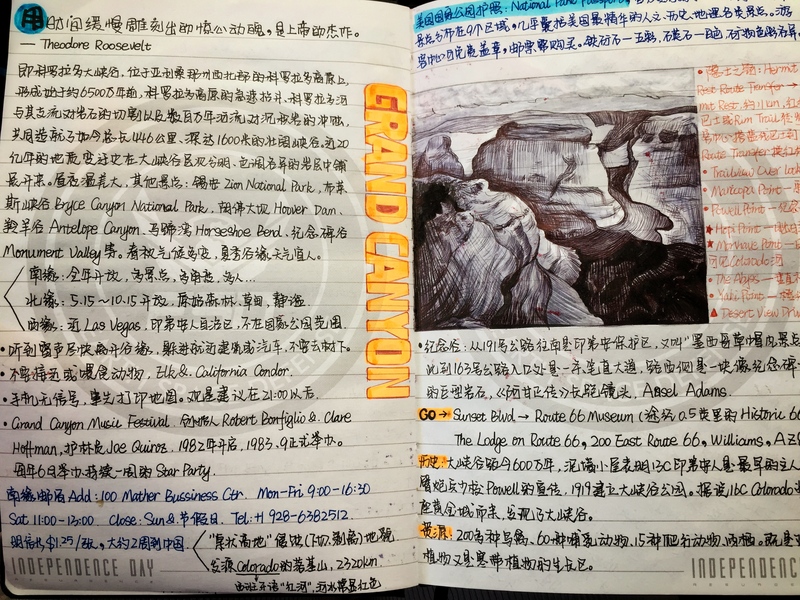 用时间缓慢雕刻出动惊心动魄，是上帝的杰作。
— Theodore Roosevelt
即科罗拉多大峡谷，位于亚利桑那州西北部的科罗拉多高原上，
形成始于约6500万年前，科罗拉多高原的急速抬升，科罗拉多河
与其支流对岩石的切割以及数百万年河流对沉积岩的冲蚀，
共同造就了如今总长446公里、深达1600米的壮阔峡谷。近20
亿年的地质变迁史在大峡谷区域分明、色调各异的岩层中铺
展开来。昼夜温差大，其他景点：锡安 Zion National Park，布莱
斯山峡谷 Bryce Canyon National Park，胡佛大坝 Hoover Dam，
羚羊谷 Antelope Canyon，马蹄湾 Horseshoe Bend，纪念碑谷
Monument Valley等。春秋气候多变，夏季谷缘天气宜人。
南缘：全年开放，多景点，多角度，多人…
北缘：5.15～10.15开放，原始森林，草甸，静谧
西缘：近 Las Vegas，印第安人自治区，不在国家公园范围
• 听到雷声尽快离开谷缘，躲进就近建筑或汽车，不要去树下。
• 不要接近或喂食动物，Elk & California Condor.
• 手机无信号，事先打印地图。观星建议在21:00以后
• Grand Canyon Music Festival. Robert Bonfiglio & Clare
Hoffman, 护林员 Joe Quiroz, 1982年开启, 1983.9正式举办。
每年6月举办持续一周的 Star Party.
南缘邮局 Add: 100 Mather Bussiness Ctr. Mon-Fri 9:00-16:30
Sat 11:00-13:00 Close: Sun & 节假日. Tel: +1 928-6382512.
明信片 $1.25/张，大约2周到中国
"桌状高地"侵蚀（下切、剥离）地貌
发源Colorado的落基山，2320km
西班牙语"红河"，
INDEPENDENCE DAY
GRAND CANYON
美国国家公园护照：National Park Passport，
景点分布在9个区域，几乎囊括美国最精华的人文、历史、地理名类景点。游
客中心可免费盖章，邮票需购买。
Hermit
Rest Route Transfer →
mit Rest, 约11km,
Rim Trail
Route Transfer
• Trailview Over Look
• Maricopa Point —
• Powell Point — 纪念
★ Hopi Point —
★ Mohave Point —
可见Colorado河
• The Abyss —
• Yaki Point —
▲ Desert View Drive
• 纪念谷：从191号公路往南是印第安保护区，又叫"墨西哥草帽风景点
此到163号公路入口处是一条笔直大道，路西侧是一块像纪念碑
的巨型岩石，《阿甘正传》长跑镜头，Ansel Adams.
GO → Sunset Blvd → Route 66 Museum（途径0.5英里的Historic 66
The Lodge on Route 66, 200 East Route 66, Williams, AZ
历史：大峡谷距今600万年，泥墙小屋表明13C印第安人是最早的主人
Powell的宣传，1919建立大峡谷公园。据说16C Colorado
座黄金城而来，发现了大峡谷。
资源：200多种鸟禽、60种哺乳动物、15种爬行动物、两栖。既是
植物又是寒带植物的生长区。
INDEPENDENCE